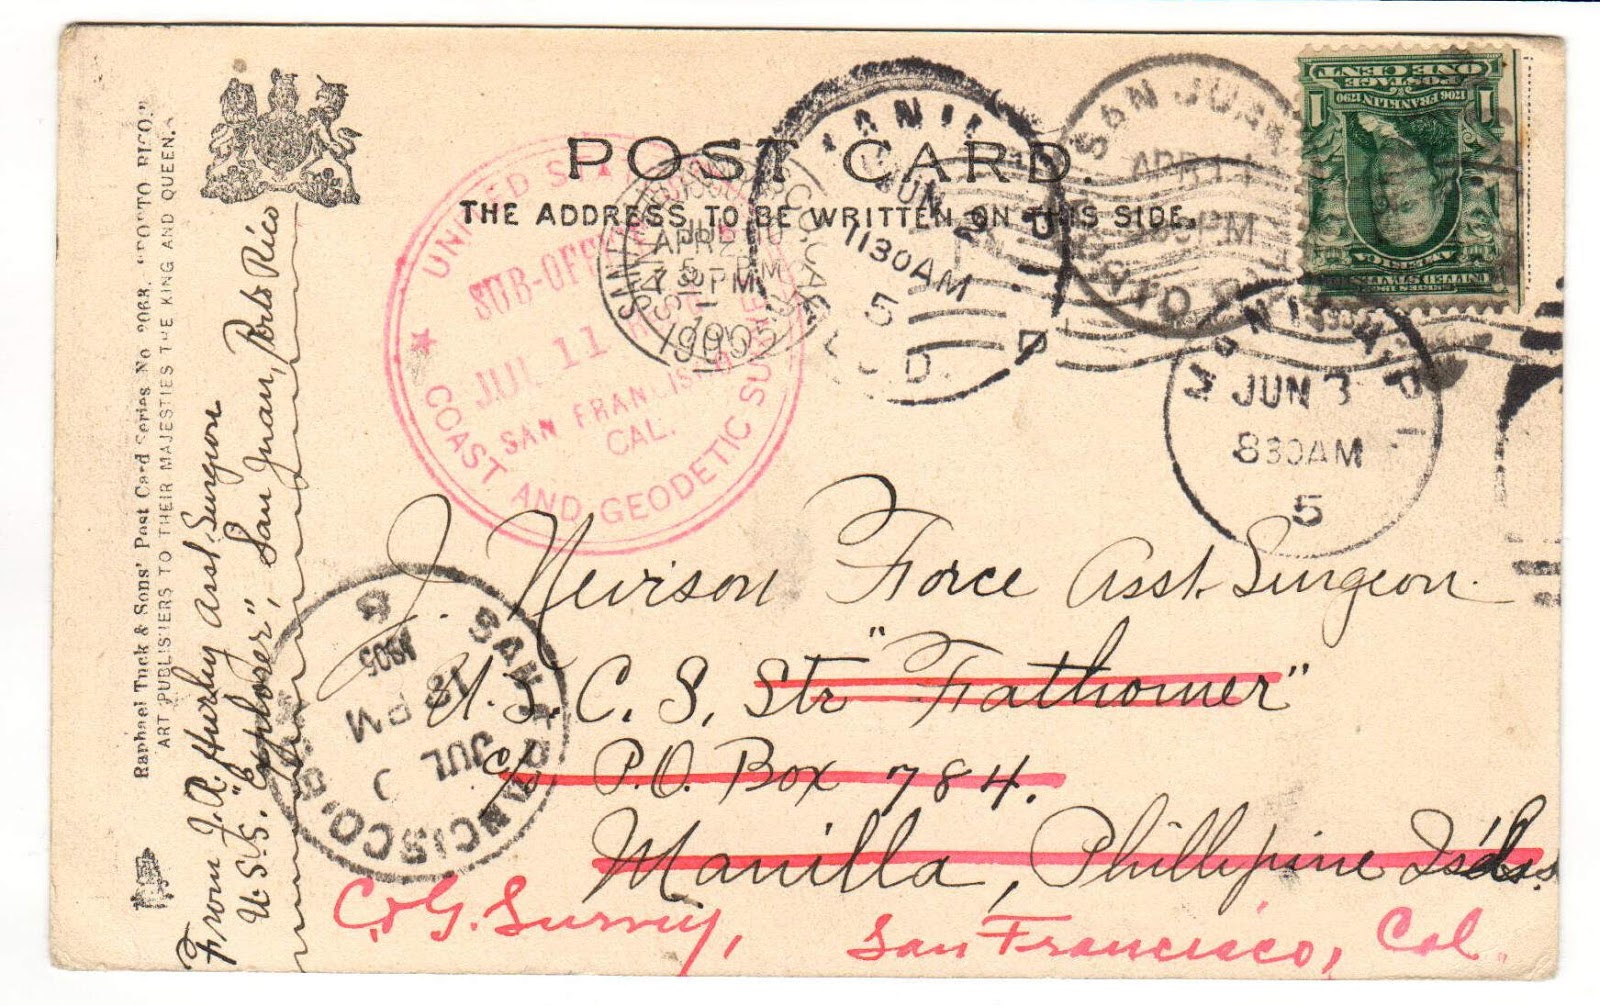 POST CARD.
THE ADDRESS TO BE WRITTEN ON THIS SIDE.
Raphael Tuck & Sons' Post Card Series No. 2068. "PORTO RICO."
ART PUBLISHERS TO THEIR MAJESTIES THE KING AND QUEEN.
From J. A. Hurley Asst Surgeon
U.S.S. "Explorer", San Juan, Porto Rico
UNITED STATES
SUB-OFFICE
JUL 11
SAN FRANCISCO
CAL.
COAST AND GEODETIC SURVEY
SAN FRANCISCO, CAL.
APR 2
7 30 PM
1905
MANILA
JUN
1130AM
5
SAN JUAN
APR 14
PM
ONE CENT
POSTAGE
1706 FRANKLIN 1790
1 1
UNITED STATES OF AMERICA
MANILA, P.I.
JUN 3
830AM
5
J. Nevison Force Asst. Surgeon.
U. S. C. S. Str "Fathomer"
c/o P.O. Box 784.
Manilla, Phillipine Is'ds.
C. & G. Survey, San Francisco, Cal.
SAN FRANCISCO,
JUL
PM
1905